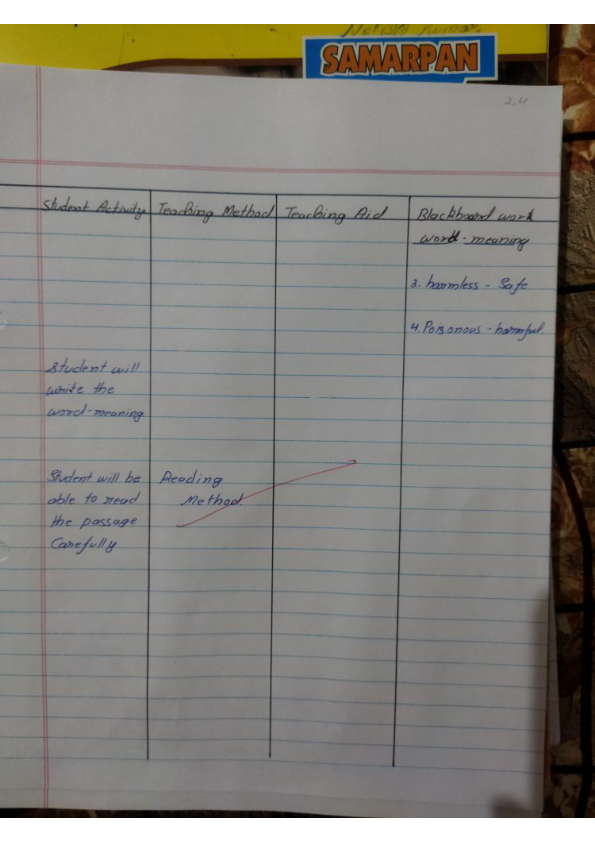 SAMARPAN
2,4
Student Activity
Teaching Method
Teaching Aid
Blackboard work
word-meaning
3. harmless - Safe
4. Poisonous - harmful.
Student will
write the
word-meaning
Student will be
able to read
the passage
Carefully
Reading
Method.